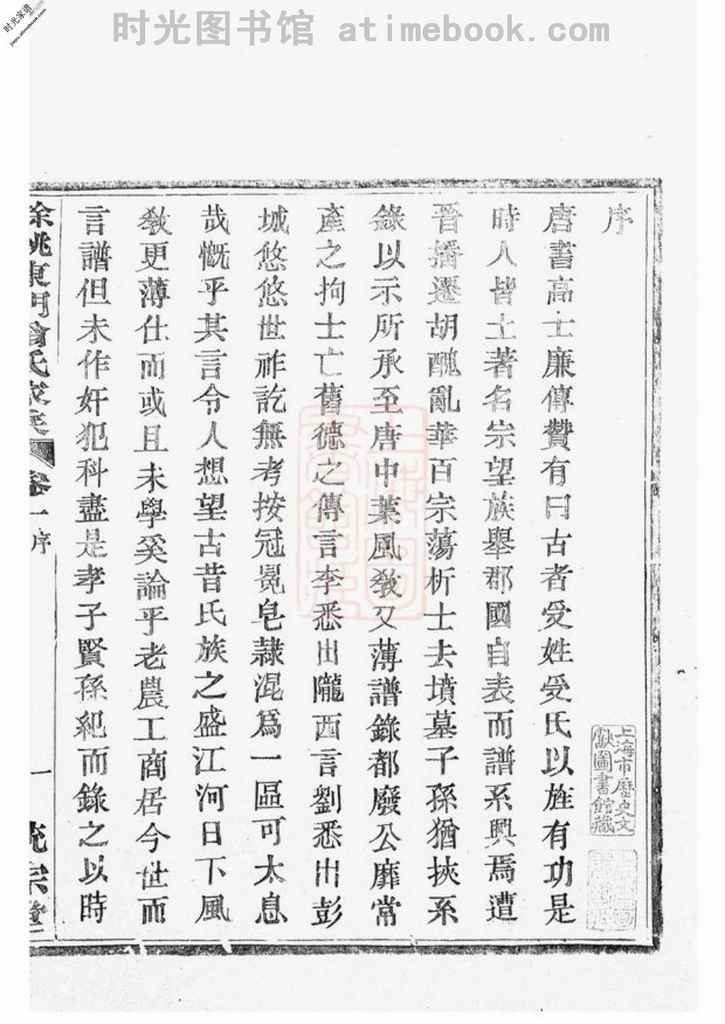 时光图书馆 atimebook.com
时光家谱
序
唐書高士廉傳贊有曰古者受姓受氏以旌有功是
時人皆土著名宗望族舉郡國自表而譜系興焉遭
晉播遷胡醜亂華百宗蕩析士去墳墓子孫猶挾系
錄以示所承至唐中葉風敎又薄譜錄都廢公靡常
產之拘士亡舊德之傳言李悉出隴西言劉悉出彭
城悠悠世祚訖無考按冠冕皂隸混爲一區可太息
哉慨乎其言令人想望古昔氏族之盛江河日下風
敎更薄仕而或且未學奚論乎老農工商居今世而
言譜但未作奸犯科盡是孝子賢孫紀而錄之以時
餘姚東門
氏
卷一序
一
上海市歷史文
獻圖書館藏